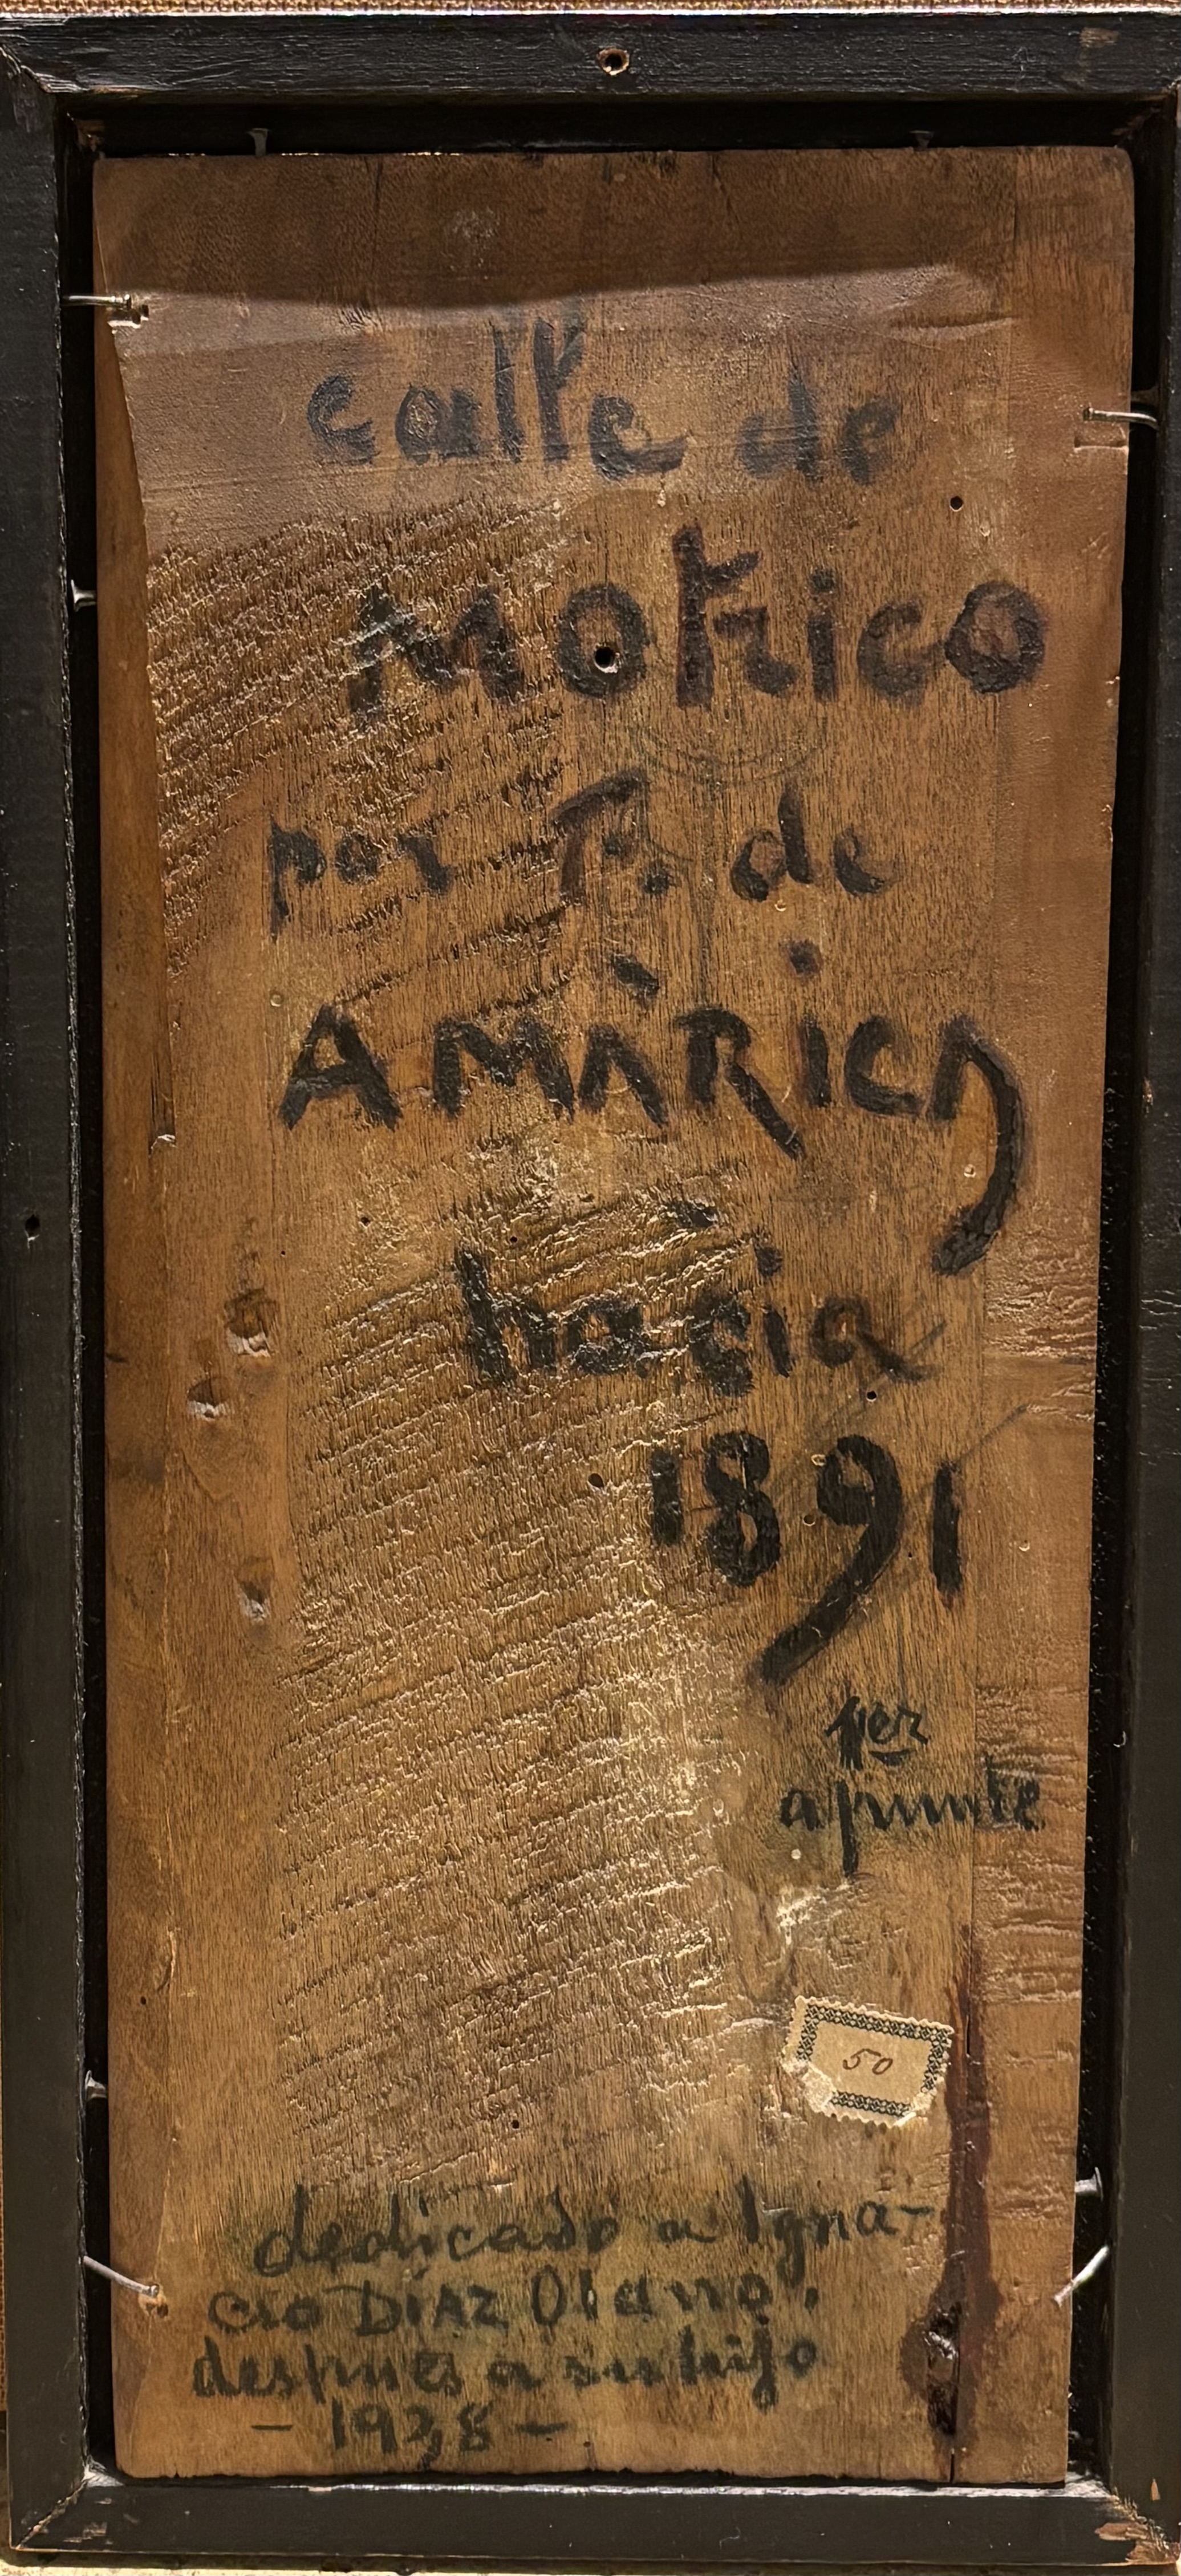 calle de
Motrico
por T. de
AMÀRiCA
hacia
1891
1er
apunte
50
dedicado a Igna-
cio DiAZ Olano,
después a su hijo
- 1938 -